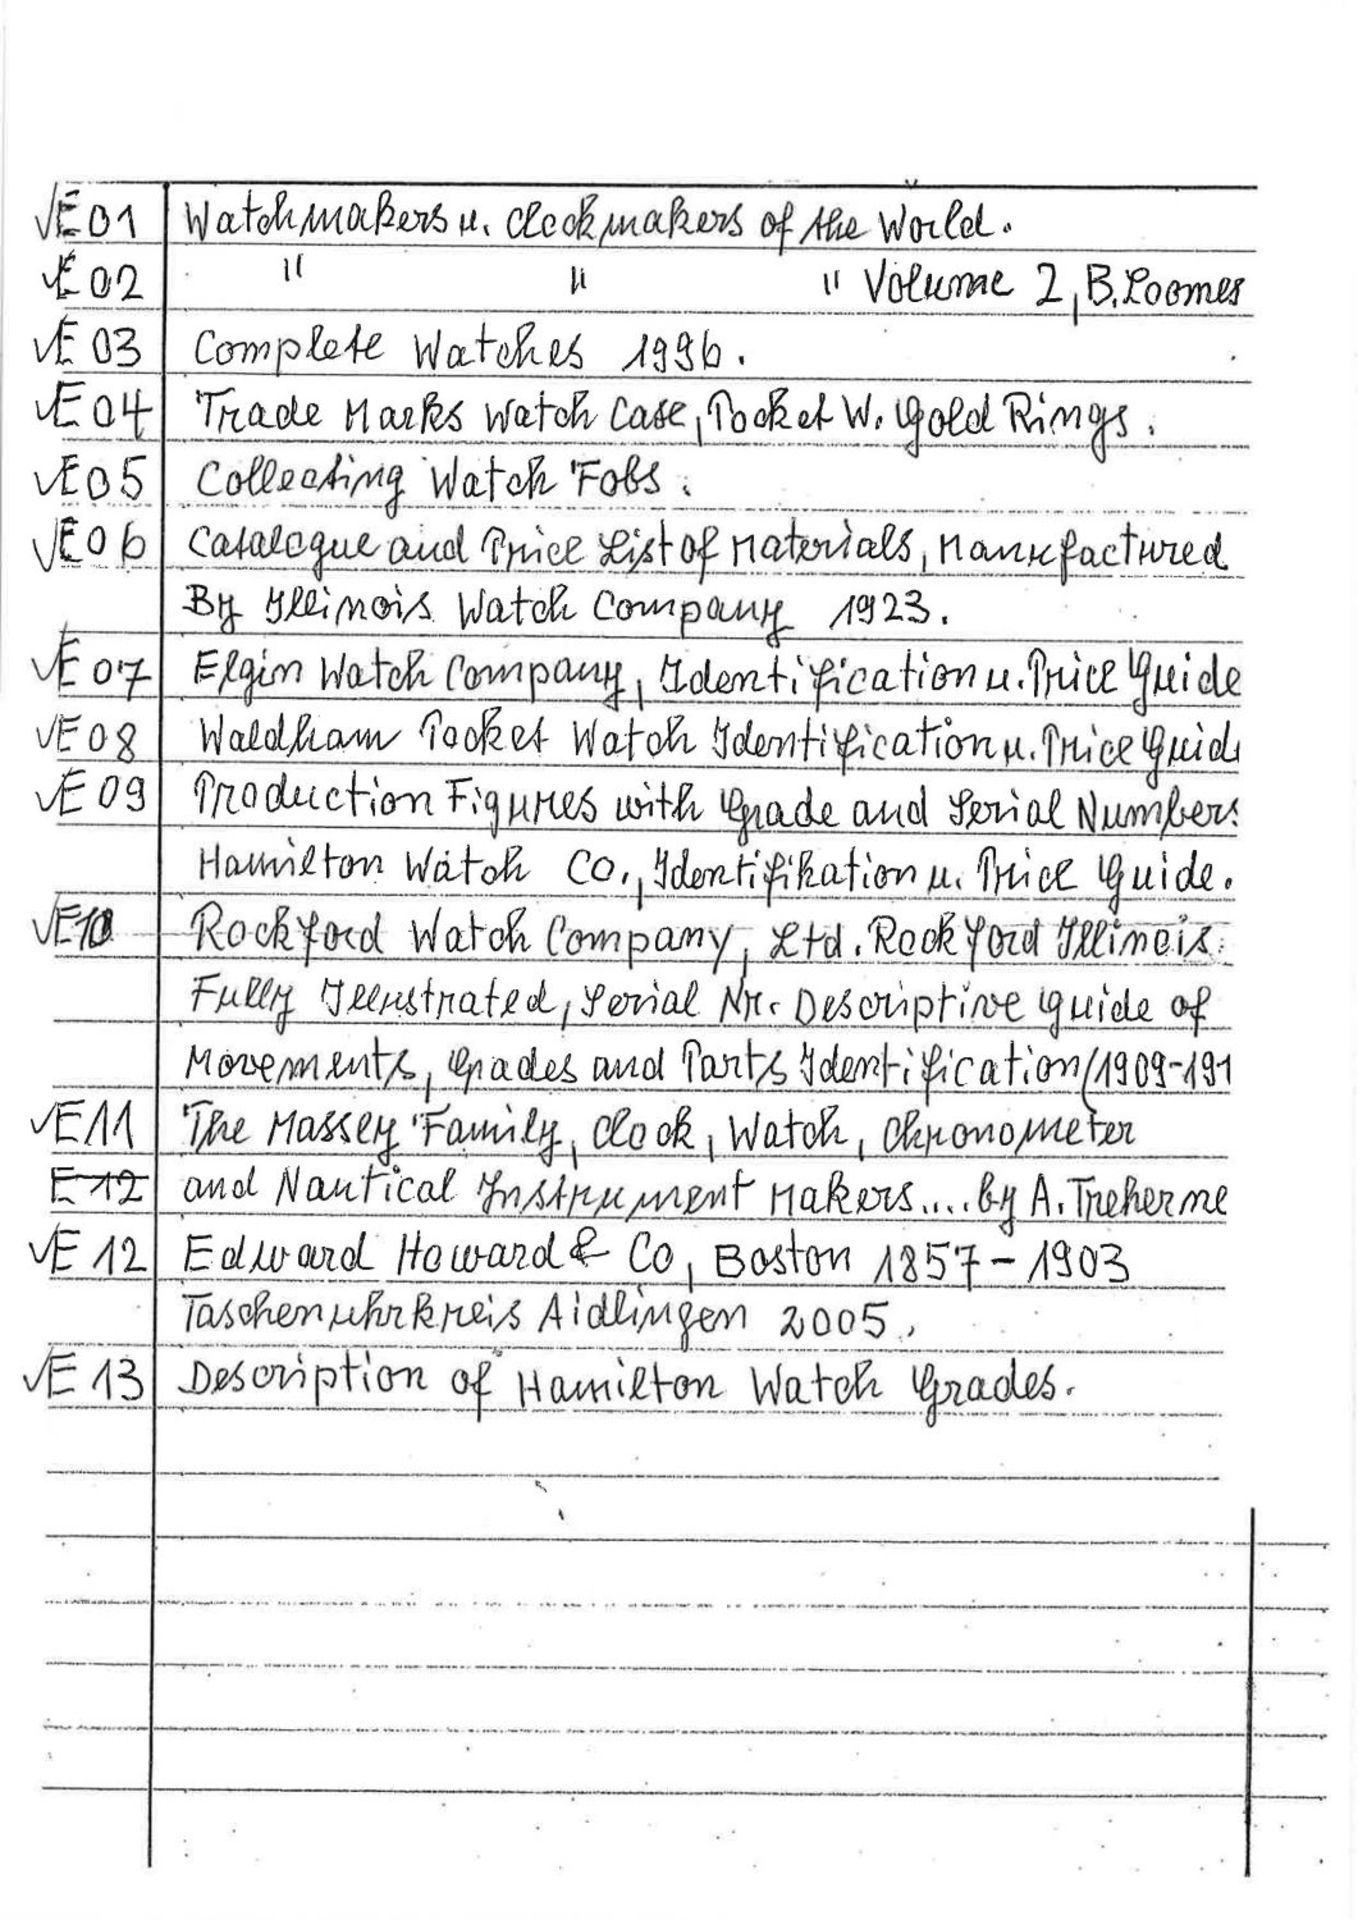 √E01 Watchmakers u. Clockmakers of the World.
√E02 " " " Volume 2, B. Loomes
√E03 Complete Watches 1996.
√E04 Trade Marks Watch Case, Pocket W. Gold Rings.
√E05 Collecting Watch Fobs.
√E06 Catalogue and Price List of Materials, Manufactured
By Illinois Watch Company 1923.
√E07 Elgin Watch Company, Identification u. Price Guide
√E08 Waldham Pocket Watch Identification u. Price Guid
√E09 Production Figures with Grade and Serial Numbers
Hamilton Watch Co., Identifikation u. Price Guide.
√E10 Rockford Watch Company, Ltd. Rockford Illinois.
Fully Illustrated, Serial Nr. Descriptive Guide of
Movements, Grades and Parts Identification (1909-191
√E11 The Massey Family, Clock, Watch, Chronometer
E12 and Nautical Instrument Makers.... by A. Treherne
√E12 Edward Howard & Co, Boston 1857-1903
Taschenuhrkreis Aidlingen 2005.
√E13 Description of Hamilton Watch Grades.